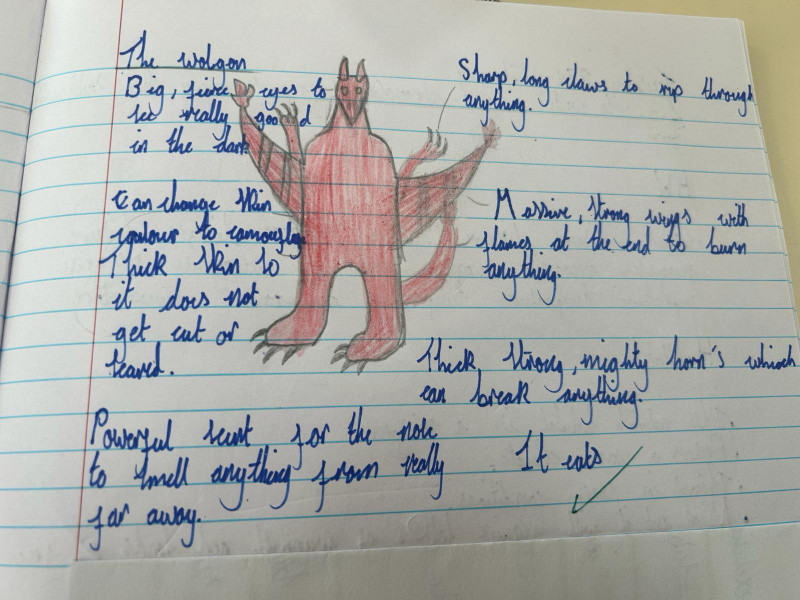 The wolgon
Big, fierce eyes to
see really good
in the dark
Sharp, long claws to rip through
anything.
Can change skin
coulour to camouflag
Thick skin so
it does not
get cut or
teared.
Massive, strong wings with
flames at the end to burn
anything.
Thick, strong, mighty horn's whinch
can break anything.
Powerful scent for the nose
to smell anything from really
far away.
It eats